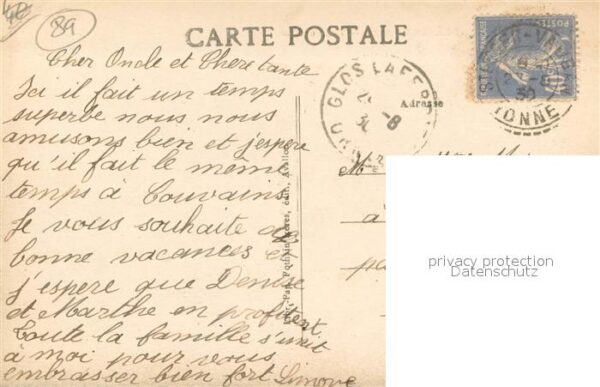 4€
89
CARTE POSTALE
Cher Oncle et Chere tante
Ici il fait un temps
superbe nous nous
amusons bien et j'espere
qu'il fait le même
temps à Couvains
Je vous souhaite de
bonne vacances et
j'espere que Denise
et Marthe en profitent
Toute la famille s'unit
à moi pour vous
embrasser bien fort Simone
Adresse
GLOS LA FER
8
YONNE
30
POSTES
40
M
à
privacy protection
Datenschutz